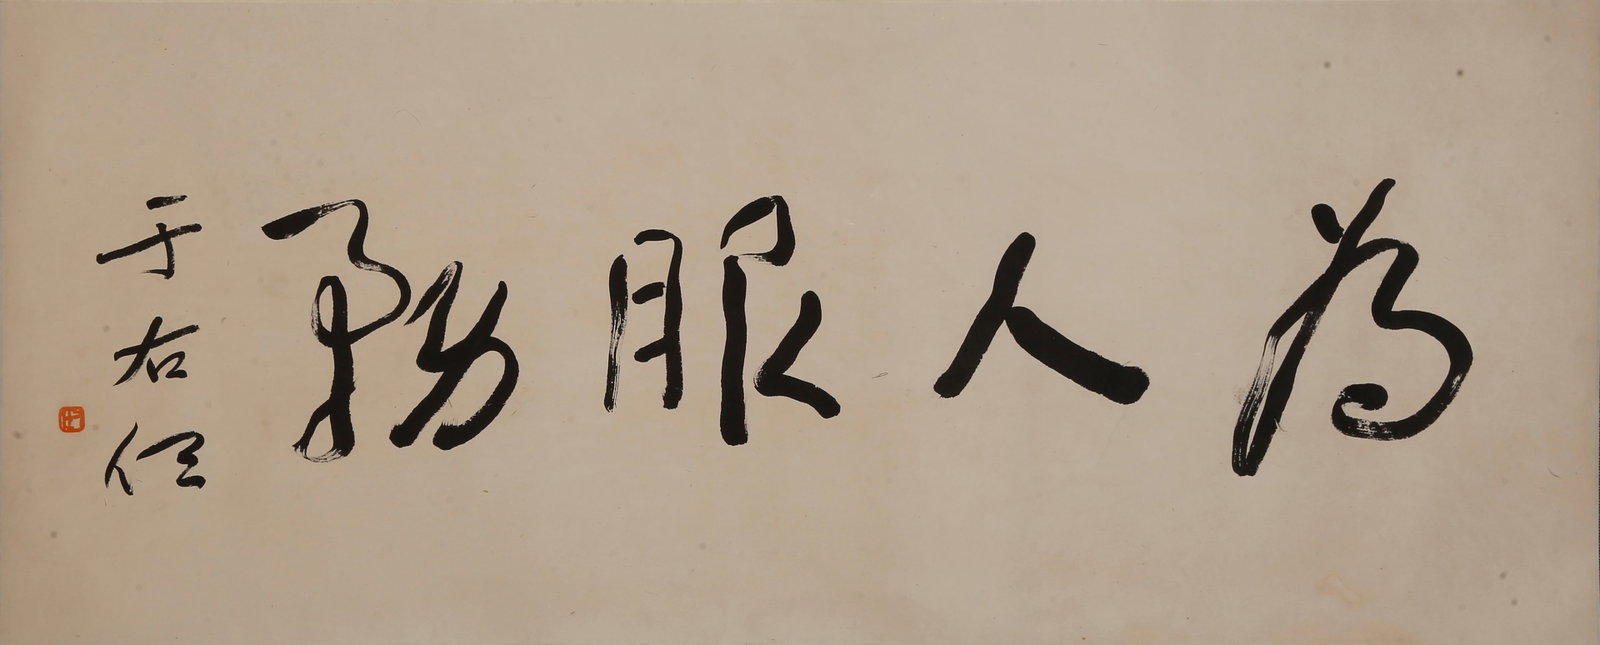 為人服務
于右任